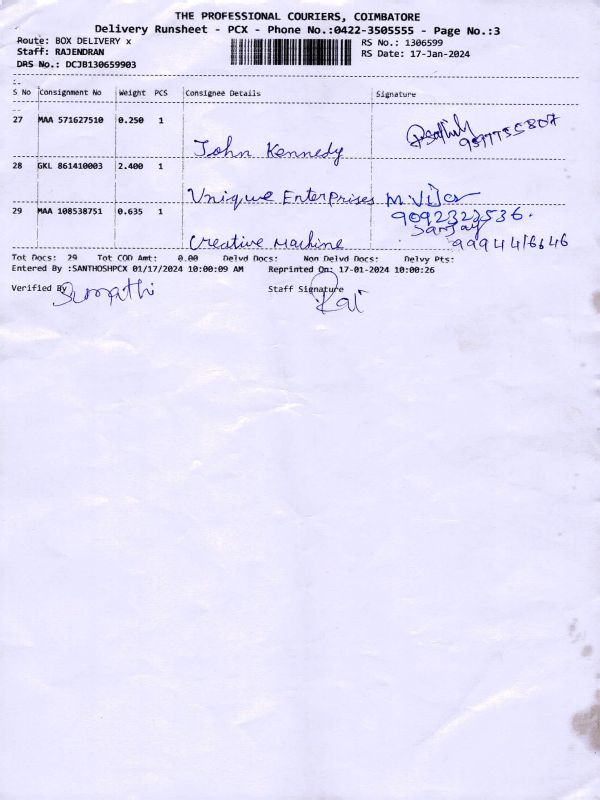 THE PROFESSIONAL COURIERS, COIMBATORE
Delivery Runsheet - PCX - Phone No.:0422-3505555 - Page No.:3
Route: BOX DELIVERY x RS No.: 1306599
Staff: RAJENDRAN RS Date: 17-Jan-2024
DRS No.: DCJB130659903
S No Consignment No Weight PCS Consignee Details Signature
27 MAA 571627510 0.250 1
John Kennedy
28 GKL 861410003 2.400 1
Unique Enterprises M.Vijay
9092322536.
29 MAA 108538751 0.635 1 Sanjay
Creative Machine 9994416646
Tot Docs: 29 Tot COD Amt: 0.00 Delvd Docs: Non Delvd Docs: Delvy Pts:
Entered By :SANTHOSHPCX 01/17/2024 10:00:09 AM Reprinted On: 17-01-2024 10:00:26
Verified By Sumathi Staff Signature